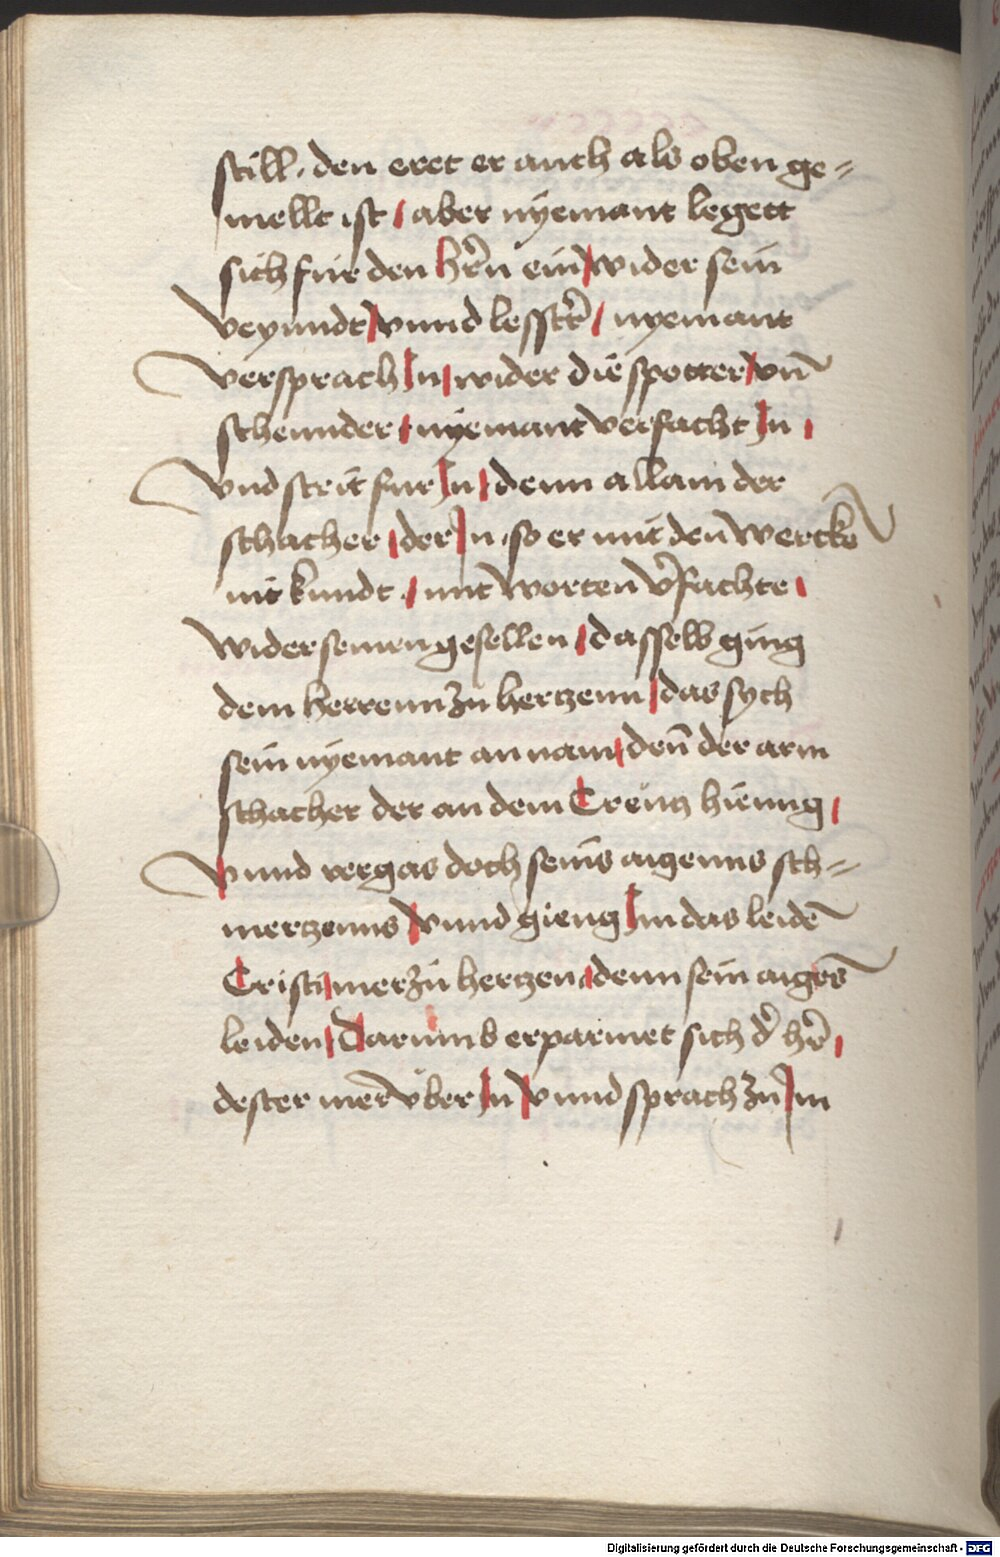 still · den eret er auch als oben ge=
mellt ist / aber nyemant legett
sich fur den hr̄n ein / wider sein
veynndt / vnnd lesstr̄ / nyemant
versprach In / wider die spotter / vn̄
schennder / nyemant verfacht In /
Vnd streit fur In / denn allain der
schacher / der In · so er mit den wercken
nit kundt · / mit worten v̄fachte /
wider seinen gesellen / dasselb ging
dem herrenn zu hertzenn / das sych
sein nyemant an nam / den̄ der arm
schacher der an dem Creütz hienng /
Vnnd vergas doch seins aigenns sch=
mertzenns / vnnd gieng Im das leidē
Cristi / mer zu hertzen / denn sein aigēs
leiden / Darumb erparmet sich d̄ hr̄ /
dester mer vber In / vnnd sprach zu Im
Digitalisierung gefördert durch die Deutsche Forschungsgemeinschaft - DFG